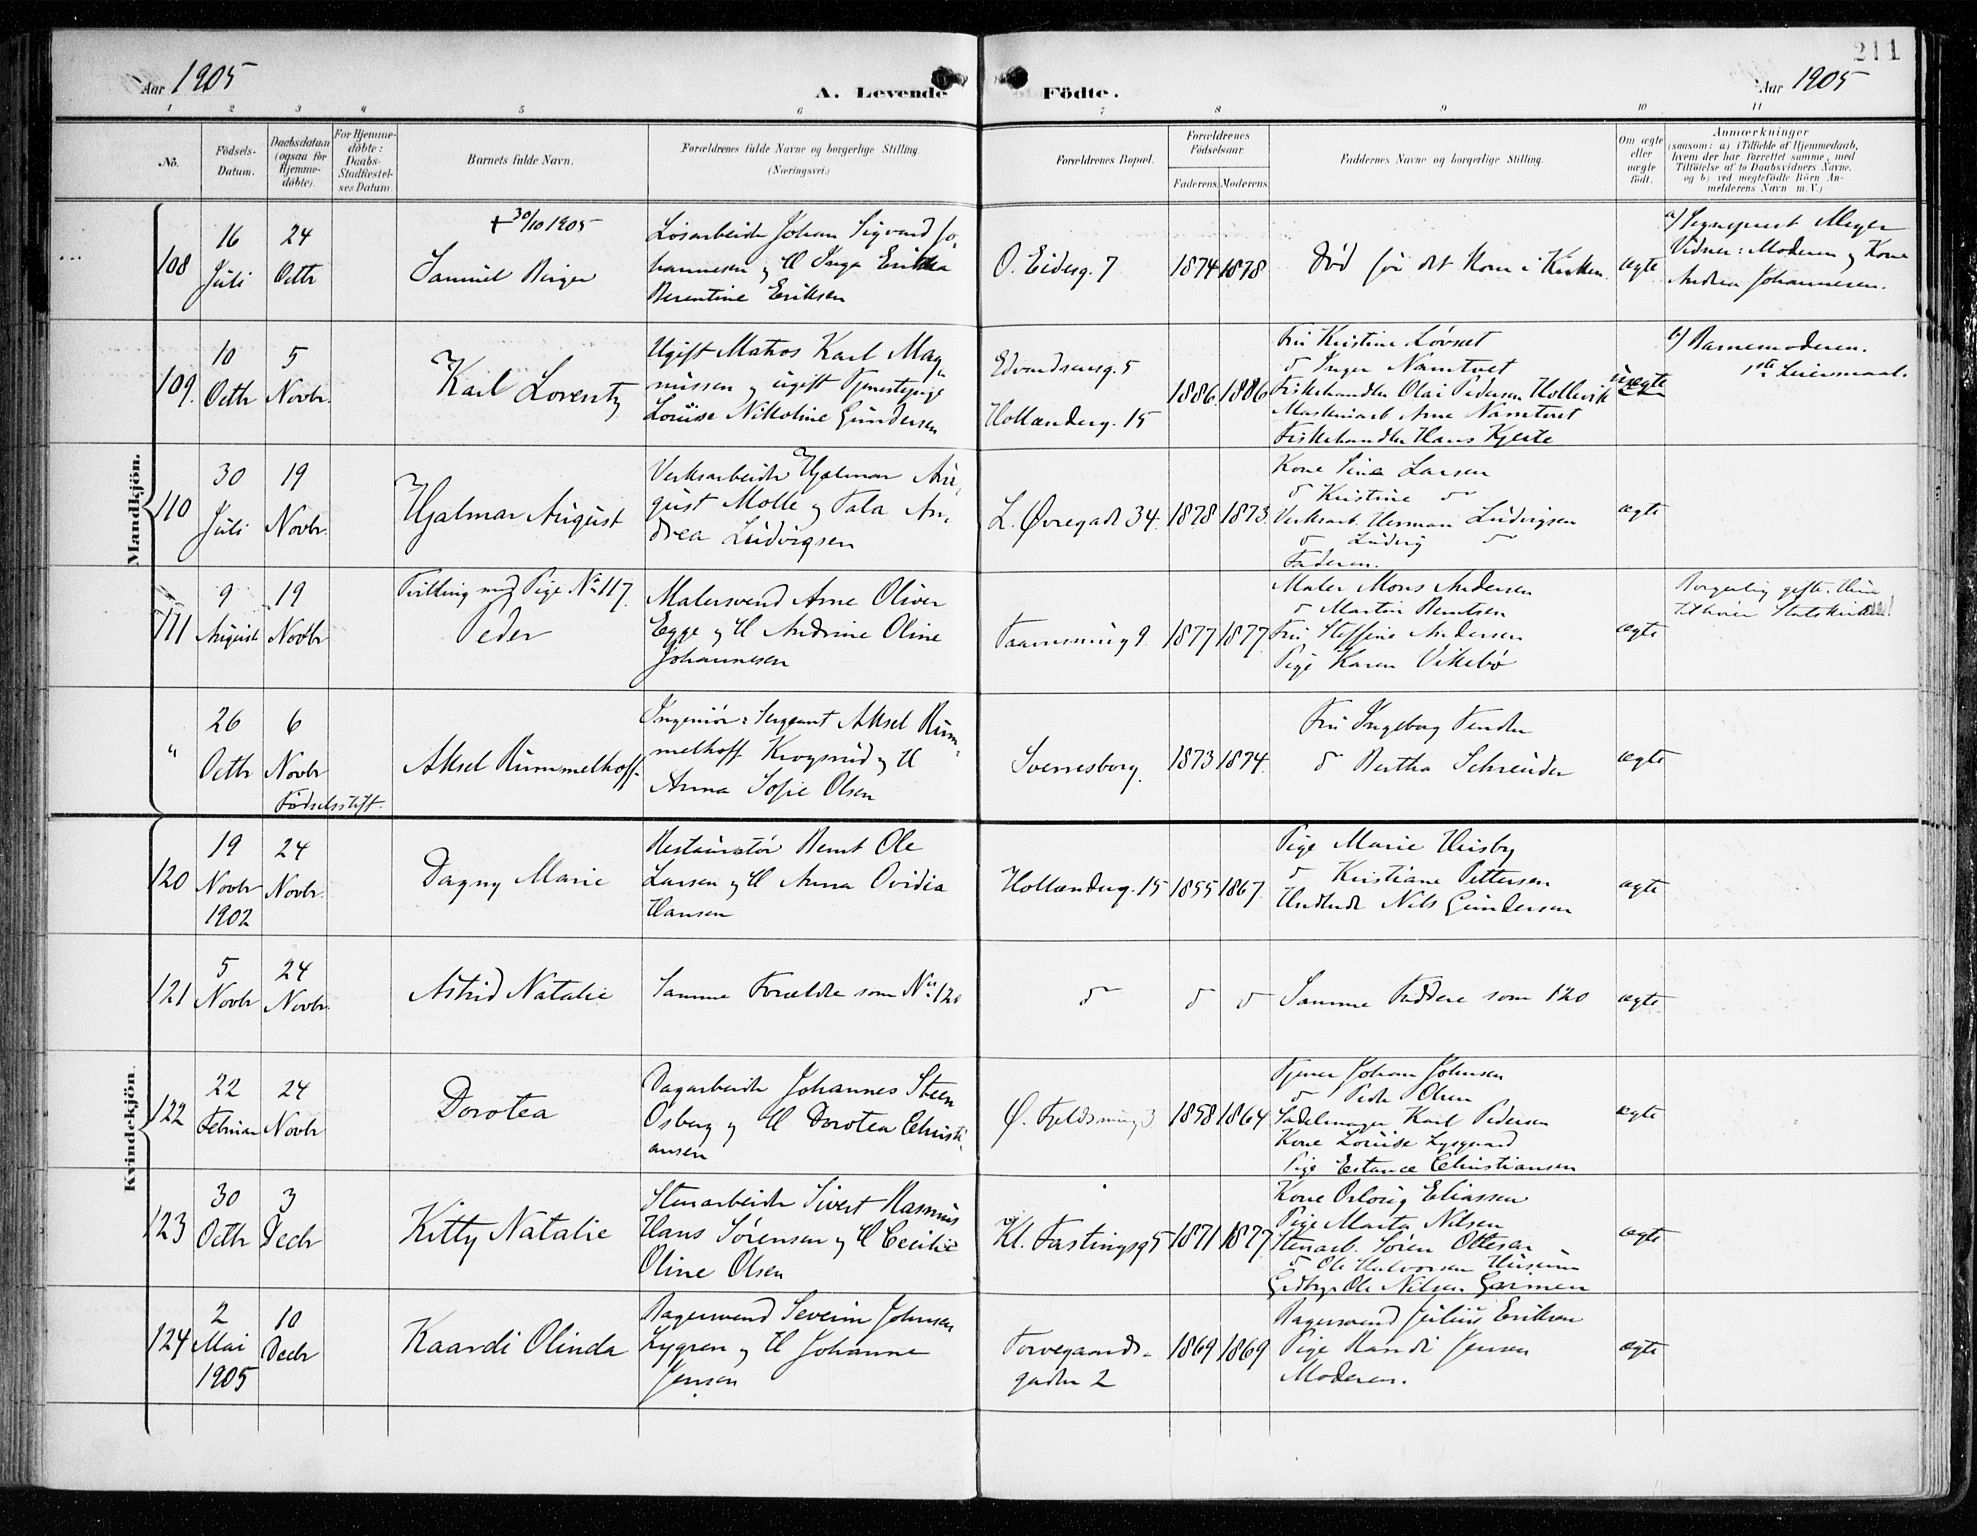 211
Aar 1905
A. Levende Födte.
Aar 1905
1 2 3 4 5 6 7 8 9 10 11
No.
Födsels-
Datum.
Daabsdatum
(ogsaa for
Hjemme-
döbte).
For Hjemme-
döbte:
Daabs-
Stadfæstel-
ses Datum.
Barnets fulde Navn.
Forældrenes fulde Navne og borgerlige Stilling.
(Næringsvei.)
Forældrenes Bopæl.
Forældrenes
Födselsaar.
Faderens. Moderens.
Faddernes Navne og borgerlige Stilling.
Om ægte
eller
uægte
født.
Anmærkninger
(saasom: a) i Tilfælde af Hjemmedaab,
hvem der har forrettet samme, med
Tilföielse af to Daabsvidners Navne,
og b) ved uægtefödte Börn An-
melderens Navn m. V.)
Mandkjön.
108
16
Juli
24
Octb
+ 30/10 1905
Samuel Birger
Løsarbeider Johan Sigvard Jo-
hannesen og H Inga
Berentine Eriksen
O. Eidesg. 7
1874 1878
Død før det kom i Kirken.
ægte
a)
Vidner: Moderen og Kone
Andrea Johannesen.
109.
10
Octb
5
Novbr.
Karl Lorentz
Ugift Matros Karl Mag-
nussen og ugift Tjenestepige
Louise Nikoline Gundersen
Edvardsensg. 5
Hollænderg. 15
1886. 1886
Fru Kristine Løvset
d Inger Namtvet
Fiskehandler Olai Pedersen Hollevik
Maskinarb Arne Namtvet
Fiskehandler Hans Kjerte
uægte
b) Barnemoderen.
1ste Leiermaal.
110
30
Juli
19
Novbr.
Hjalmar August
Verksarbeider Hjalmar Au-
gust Molle og Tala An-
drea Ludvigsen
L. Øvregade 34.
1878 1873.
Kone Sina Larsen
d Kristine d
Verksarb. Herman Ludvigsen
d Ludvig d
Faderen.
ægte
111
9
August
19
Novbr
Tvilling med Pige No 117.
Peder
Malersvend Arne Oliver
Egge og H Andrine Oline
Johannesen
Taarnsmug 9.
1877 1877.
Maler Mons Andersen
d Martin Berntsen
Fru Steffine Andersen
Pige Karen Vikebø
ægte
Borgerlig gifte.
tilhører Statskirken
"
26
Octbr
6
Novbr
Fødselsstift.
Aksel Rummelhoff.
Ingeniør: Sergeant Aksel Rum-
melhoff Krogsrud og H
Anna Sofie Olsen
Sverresborg.
1873 1874.
Fru Ingeborg
d Bertha Schreuder
ægte
Kvindekjön
120
19
Novbr
1902
24
Novbr.
Dagny Marie
Restauratør Bernt Ole
Larsen og H Anna Ovidia
Hansen
Hollænderg. 15
1855 1867.
Pige Marie Huisby
d Kristiane Pettersen
Nils Gundersen
ægte
121
5
Novbr
24
Novbr.
Astrid Natalie
Samme Forældre som No 120
d
d d
Samme Faddere som 120
ægte
122
22
Februar
24
Novbr
Dorotea
Dagarbeider Johannes Steen
Osberg og H Dorotea Christi-
ansen
Ø. Fjeldsmug 3
1858 1864
Tjener Johan Johnsen
d Peder Olsen
Sadelmager Karl Pedersen
Kone Louise Lysgaard
Pige Estance Christiansen
ægte
123
30
Octbr
3
Decbr
Kitty Natalie
Stenarbeider Sivert Rasmus
Hans Sørensen og H Cecilie
Oline Olsen
Kl. Fastingsg 5
1871 1877.
Kone Ovlovig Eliassen
Pige Marta Nilsen
Stenarb. Søren Ottesen
d Ole Halvorsen
Ole Nilsen Garmen
ægte
124
2
Mai
1905
10
Decbr
Kaardi Olinda
Bagersvend Severin Johnsen
Lygren og H Johanne
Jensen
Torvegaards-
gaden 2
1869 1869
Bagersvend Julius Eriksen
Pige Randi Jensen
Moderen.
ægte